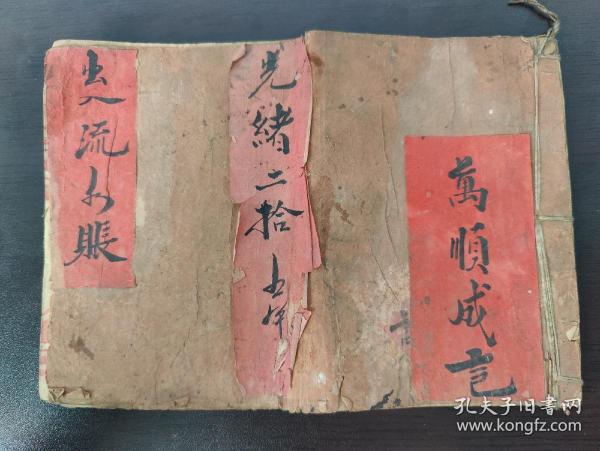 萬順成記
光緒二拾五年
出入流水賬
孔夫子旧书网
www.kongfz.com